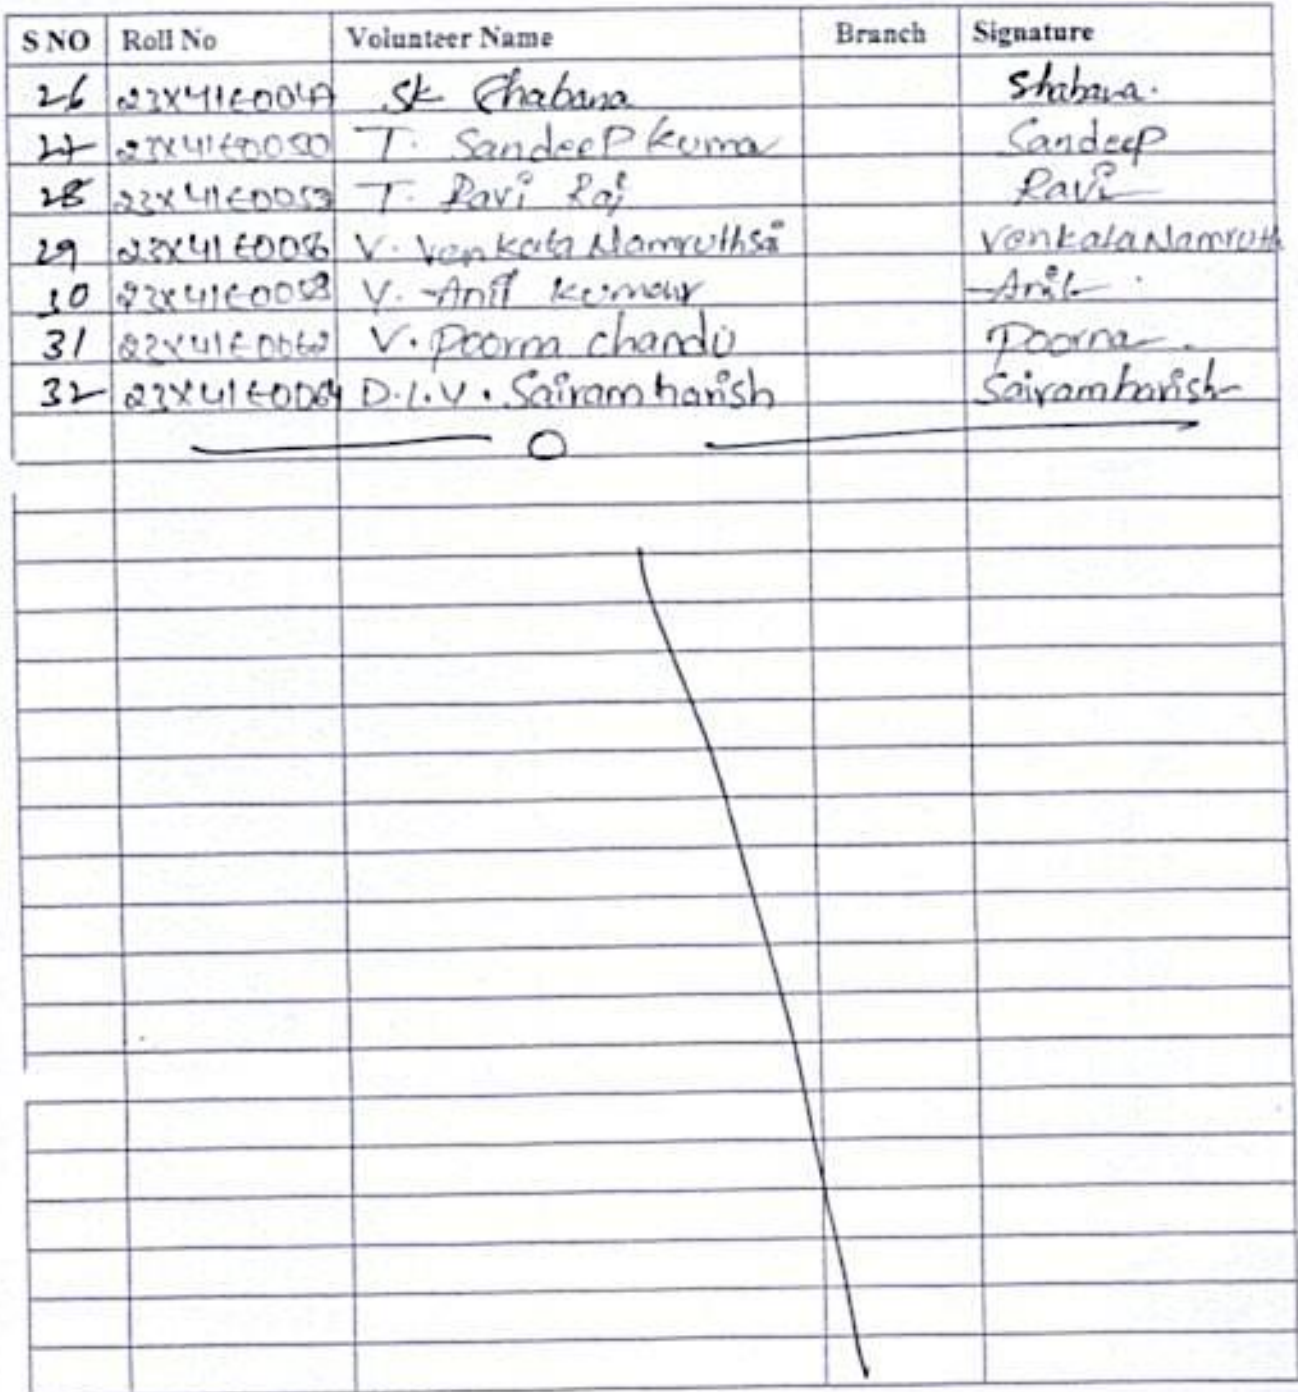 S NO Roll No Volunteer Name Branch Signature
26 23X41E0049 SK Shabana Shabana.
27 23X41E0050 T. Sandeep Kuma Sandeep
28 23X41E0053 T. Ravi Raj Ravi
29 23X41E0056 V. Venkata Namruthsai Venkata Namruth
30 23X41E0058 V. Anil Kumar Anil
31 23X41E0062 V. Poorna chandu Poorna
32 23X41E0064 D.L.V. Sairam harish Sairam harish